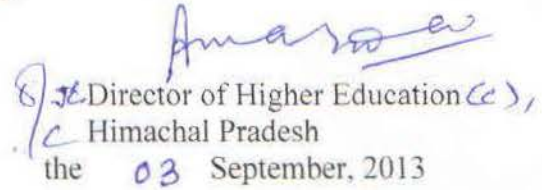 Jt. Director of Higher Education (C),
Himachal Pradesh
the 03 September, 2013